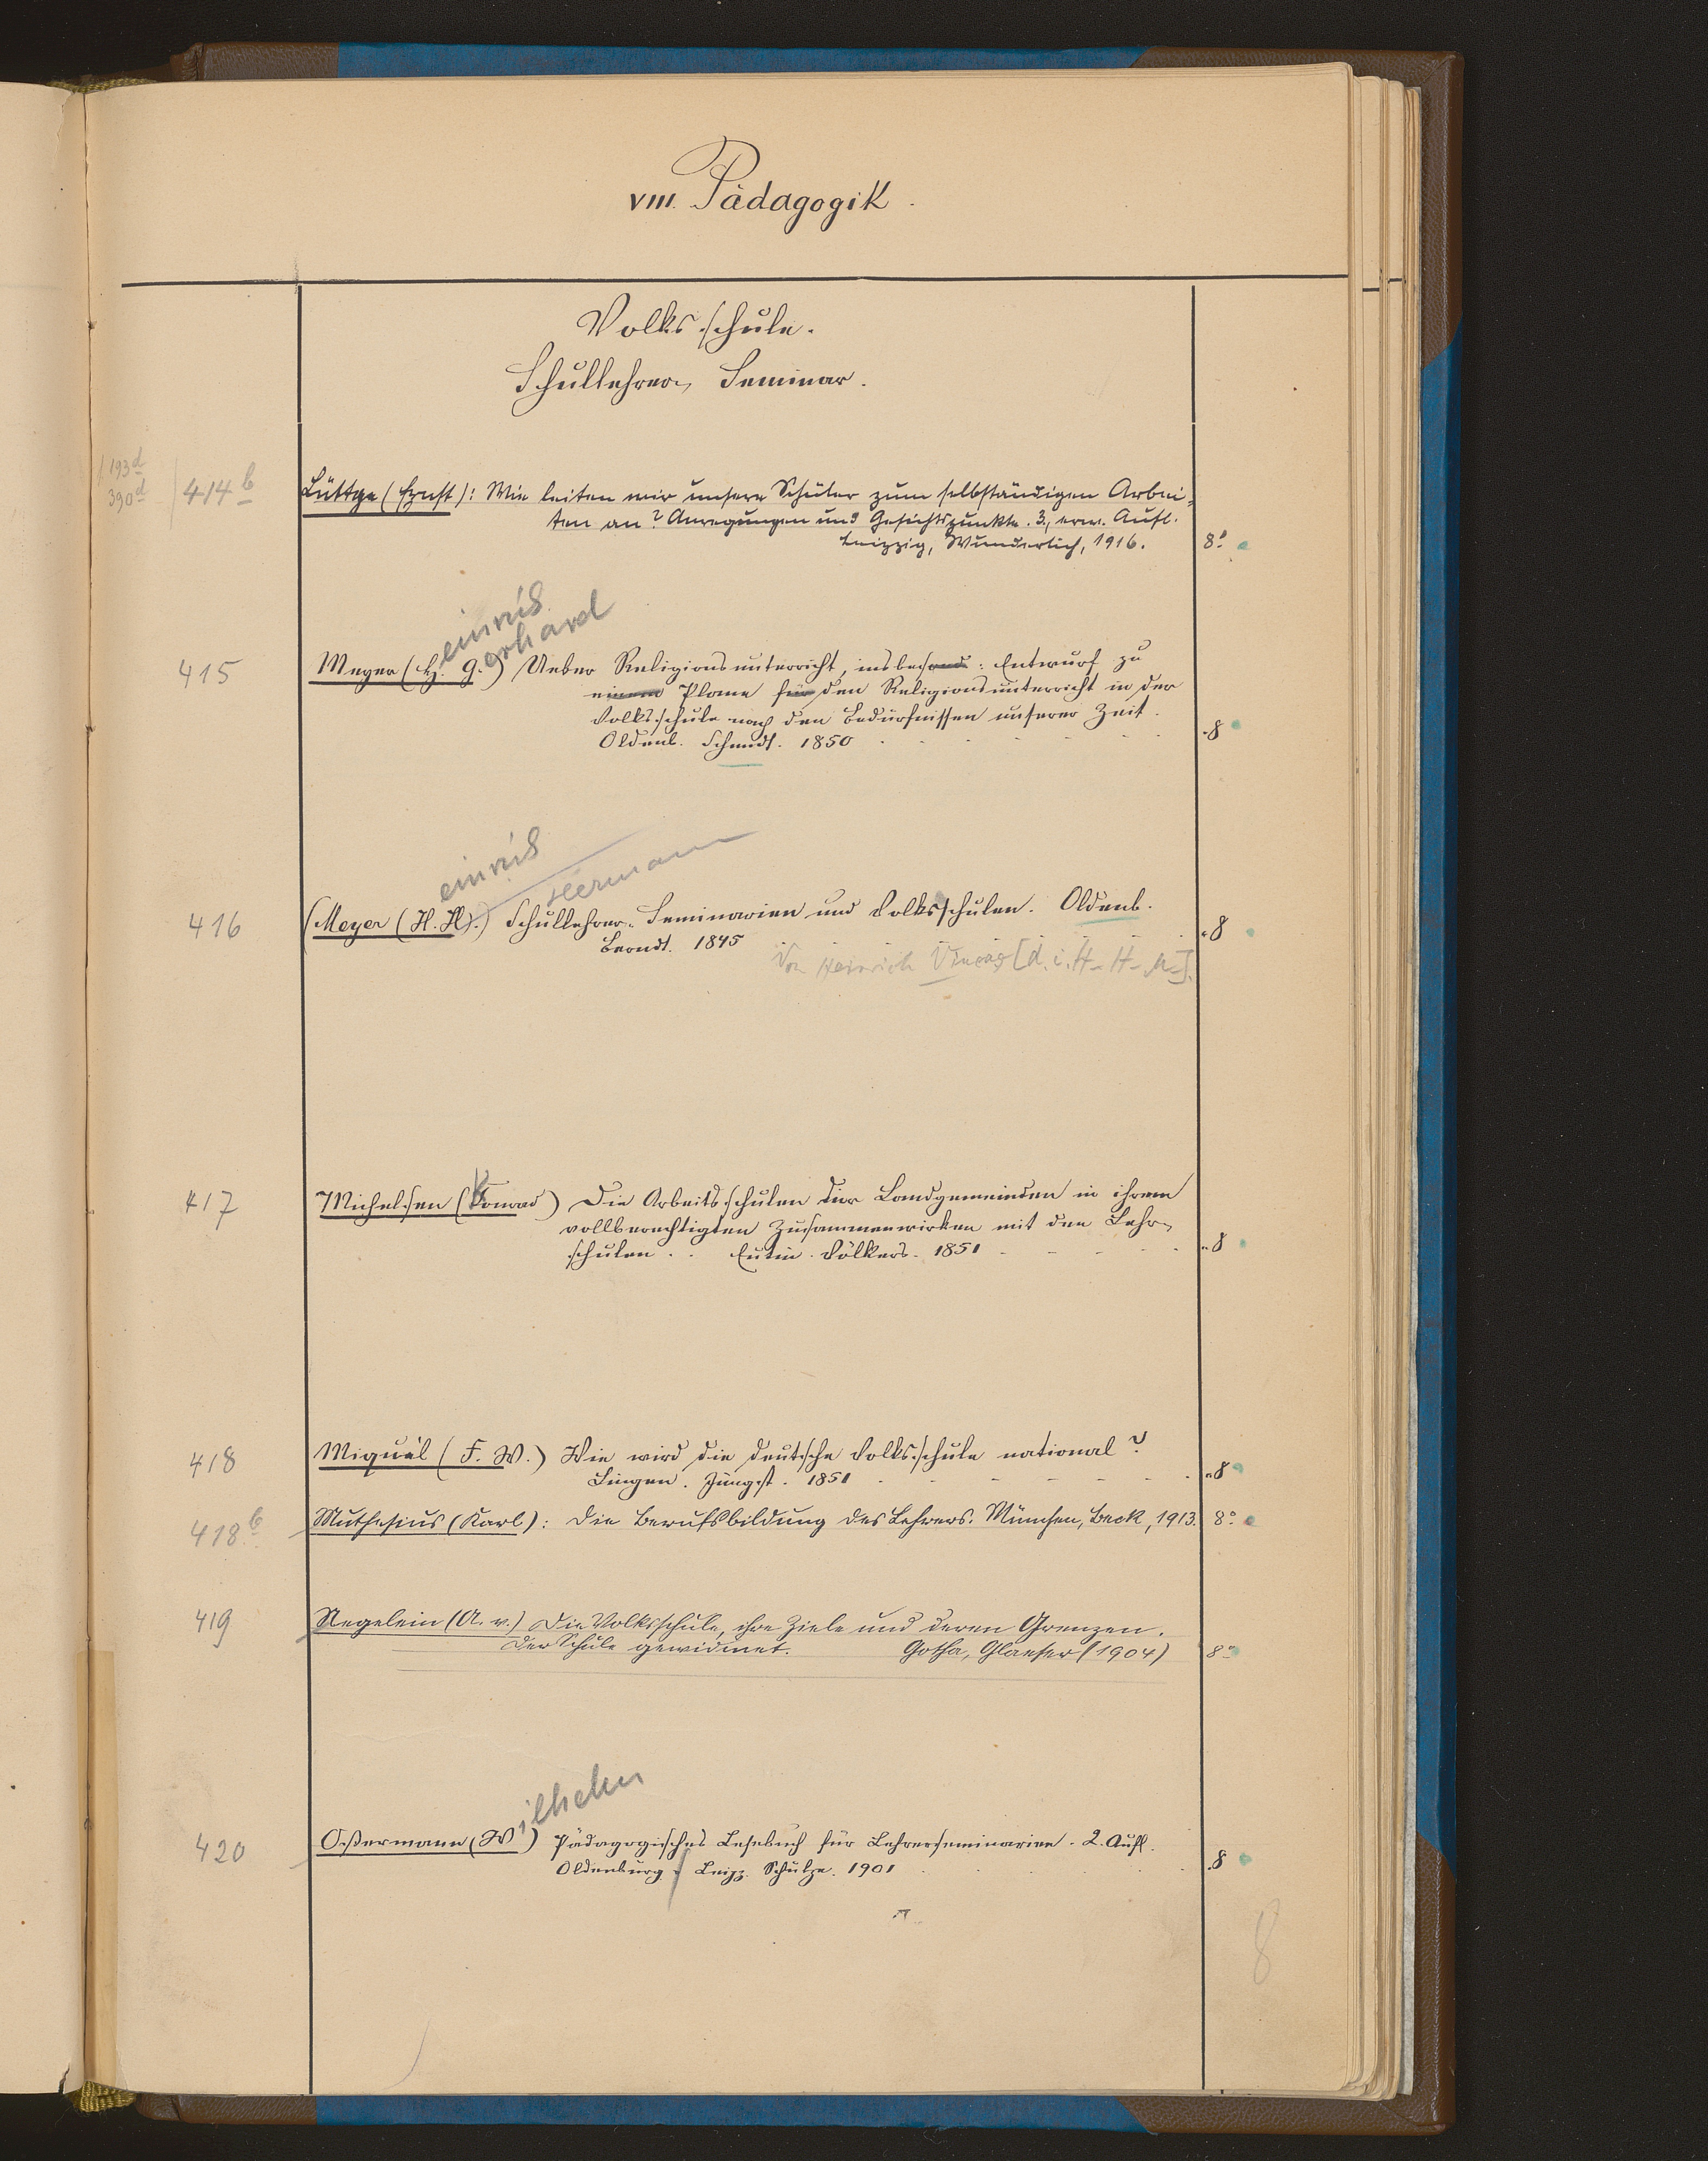 VIII. Pädagogik.
Volksschule.
Schullehrer-Seminar.
193d
390d
414b
Lüttge (Ernst): Wie leiten wir unsere Schüler zum selbständigen Arbei-
ten an? Anregungen und Gesichtspunkte. 3., erw. Aufl.
Leipzig, Wunderlich, 1916. 8°
einrich
erhard
415 Meyer (H. G.) Ueber Religionsunterricht, insbesond: Entwurf zu
einem Plane für den Religionsunterricht in der
Volksschule nach den Bedürfnissen unserer Zeit.
Oldenb. Schmidt. 1850 8
einrich
Hermann
416 (Meyer (H. H.)) Schullehrer-Seminarien und Volksschulen. Oldenb.
Berndt. 1845 8
Von Heinrich [d. i. H- H- M-].
417 Michelsen (Konrad) Die Arbeitsschulen der Landgemeinden in ihrem
vollberechtigten Zusammenwirken mit den Lehr-
schulen. Eutin. Völkers. 1851 8
418 Miquél (F. W.) Wie wird die deutsche Volksschule national?
Lingen. Jüngst. 1851 8
418b Muthesius (Karl): Die Berufsbildung des Lehrers. München, Beck, 1913. 8°
419 Negelein (A. v.) Die Volksschule, ihre Ziele und deren Grenzen.
Der Schule gewidmet. Gotha, Glaeser (1904) 8°
ilhelm
420 Ostermann (W) Pädagogisches Lesebuch für Lehrerseminarien. 2. Aufl.
Oldenburg Leipz. Schulze. 1901 8
8